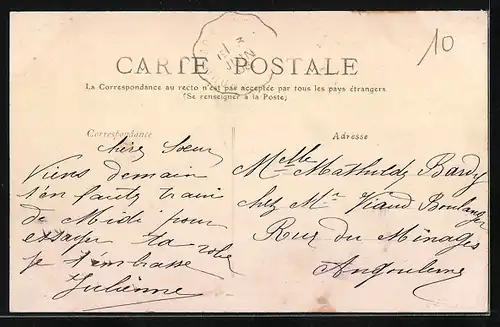 10
CARTE POSTALE
La Correspondance au recto n'est pas acceptée par tous les pays étrangers
(Se renseigner à la Poste)
Correspondance
chère Soeur
Viens demain
train
de Midi pour
essayer ta robe
je t'embrasse
Julienne
Adresse
Melle Mathilde Bardy
chez Mr Viaud Boulanger
Rue du Minages
Angouleme